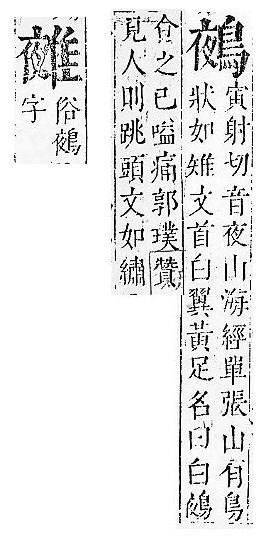 鵺
寅射切音夜山海經單張山有鳥
狀如雉文首白翼黃足名曰白鵺
食之已嗌痛郭璞贊
見人則跳頭文如繡
俗鵺
字